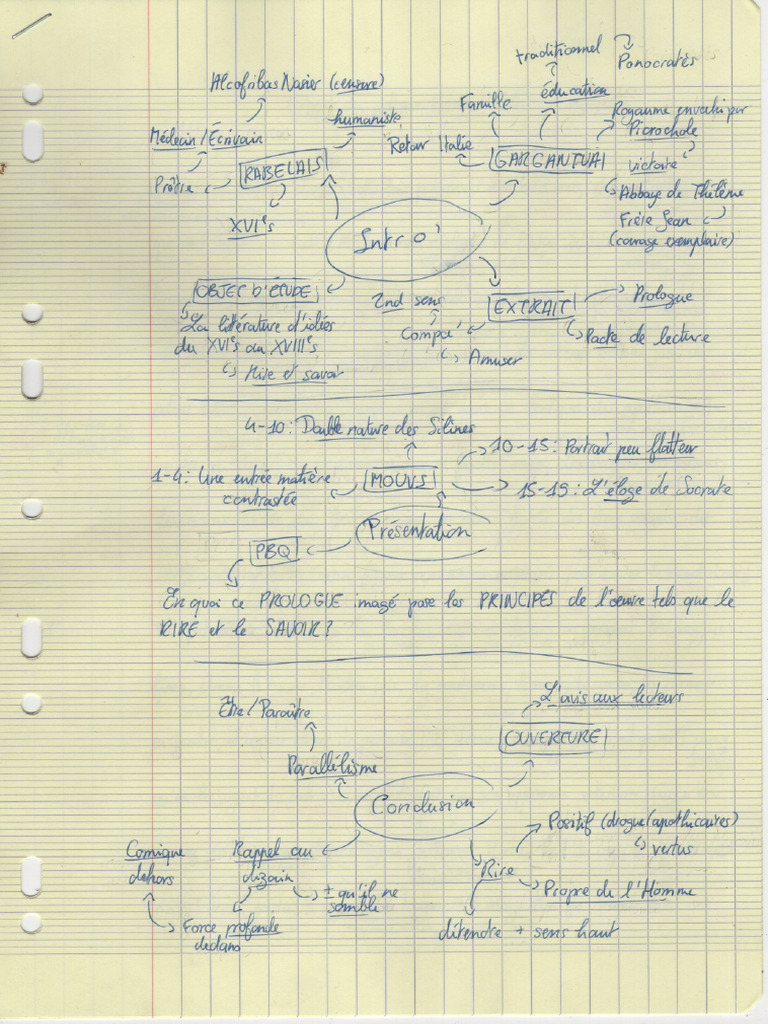 traditionnel
Ponocratès
Alcofribas Nasier (censure)
éducation
Famille
humaniste
Royaume envahi par
Picrochole
Médecin / Écrivain
Retour Italie
RABELAIS
GARGANTUA
victoire
Prêtre
Abbaye de Thélème
XVIe s
Frère Jean
(courage exemplaire)
Intro°
OBJET D'ÉTUDE
2nd sens
EXTRAIT
Prologue
La littérature d'idées
du XVIe s au XVIIIe s
Compa°
Pacte de lecture
Rire et savoir
Amuser
4-10 : Double nature des Silènes
10-15 : Portrait peu flatteur
1-4 : Une entrée matière
contrastée
MOUVS
15-19 : L'éloge de Socrate
Présentation
PBQ
En quoi ce PROLOGUE imagé pose les PRINCIPES de l'oeuvre tels que le
RIRE et le SAVOIR ?
L'avis aux lecteurs
Être / Paraître
OUVERTURE
Parallélisme
Conclusion
Positif (drogue/apothicaires)
vertus
Comique
dehors
Rappel au
dizain
Rire
± qu'il ne
semble
Propre de l'Homme
Force profonde
dedans
détendre + sens haut